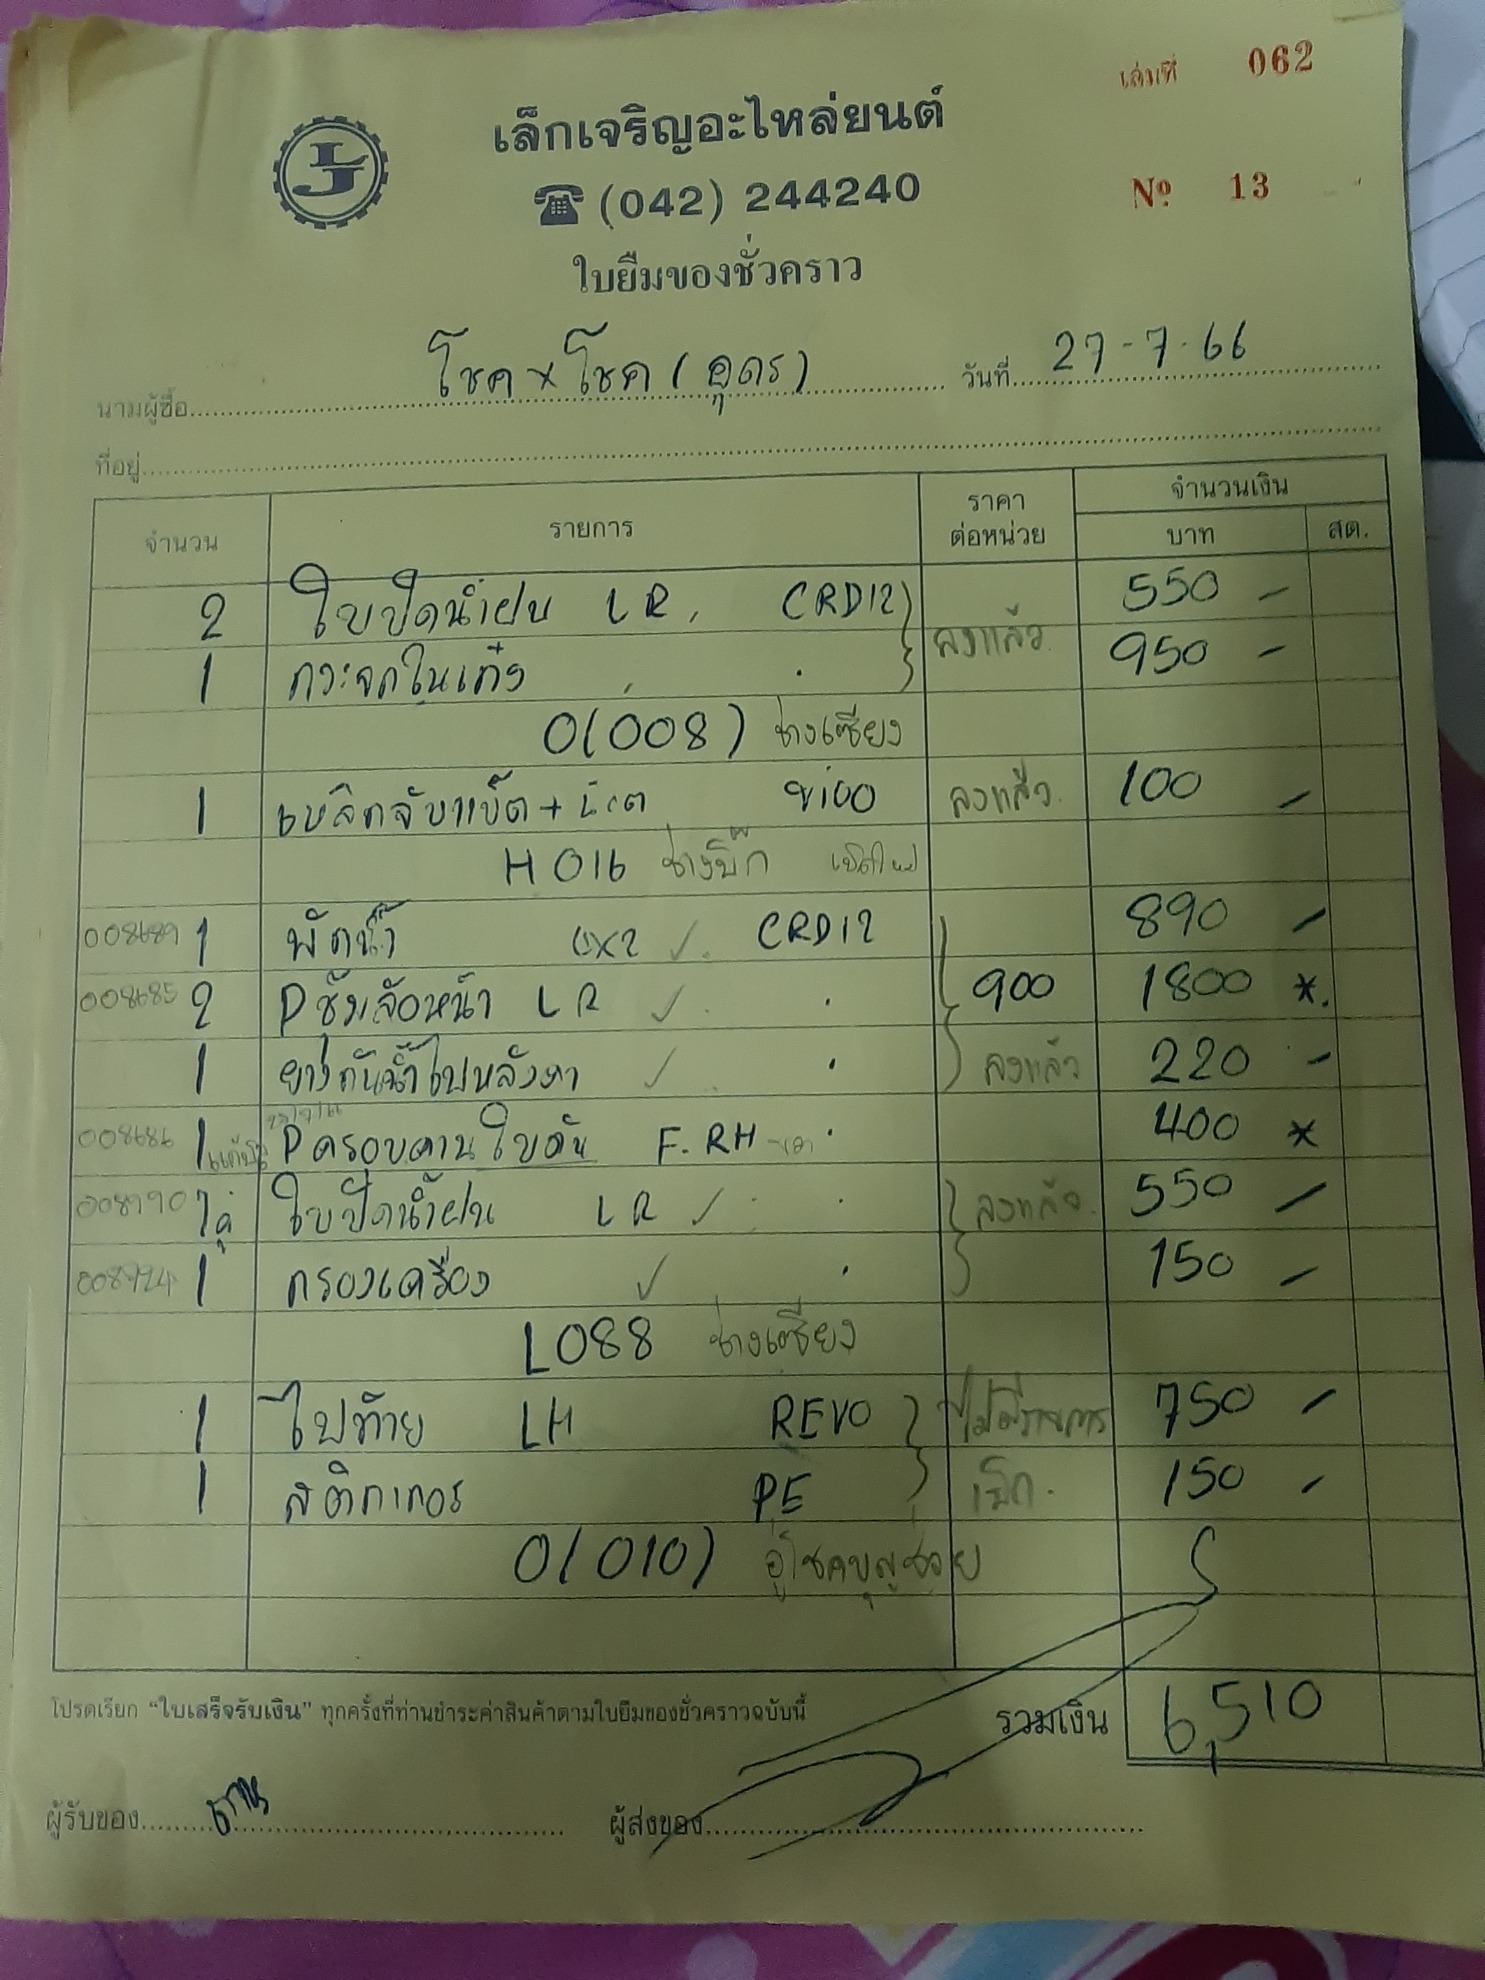 เล่มที่ 062
LJ
เล็กเจริญอะไหล่ยนต์
(042) 244240
Nº 13
ใบยืมของชั่วคราว
นามผู้ซื้อ โชค x โชค (อุดร) วันที่ 27-7-66
ที่อยู่
จำนวน รายการ ราคาต่อหน่วย จำนวนเงิน
บาท สต.
2 ใบปัดน้ำฝน LR, CRD12 ลงแล้ว 550 -
1 กระจกในเก๋ง 950 -
O(008) ช่างเซียง
1 เหล็กจับแบ็ต + น็อต ลงแล้ว 100 -
H016 ช่างบิ๊ก
008689 1 พัดน้ำ 4x2 ✓ CRD12 890 -
008685 2 P ซุ้มล้อหน้า LR ✓ 900 1800 *
1 ยางกันน้ำไปหลังคา ✓ ลงแล้ว 220 -
008686 1 P ครอบคานใบคัน F.RH 400 *
008790 1คู่ ใบปัดน้ำฝน LR ✓ ลงแล้ว 550 -
1 กรองเครื่อง ✓ 150 -
L088 ช่างเซียง
1 ไฟท้าย LH REVO ไม่มีรายการ 750 -
1 สติกเกอร์ PE เบิก. 150 -
O(010) อู่โชคบุญช่วย
โปรดเรียก "ใบเสร็จรับเงิน" ทุกครั้งที่ท่านชำระค่าสินค้าตามใบยืมของชั่วคราวฉบับนี้ รวมเงิน 6,510
ผู้รับของ ผู้ส่งของ